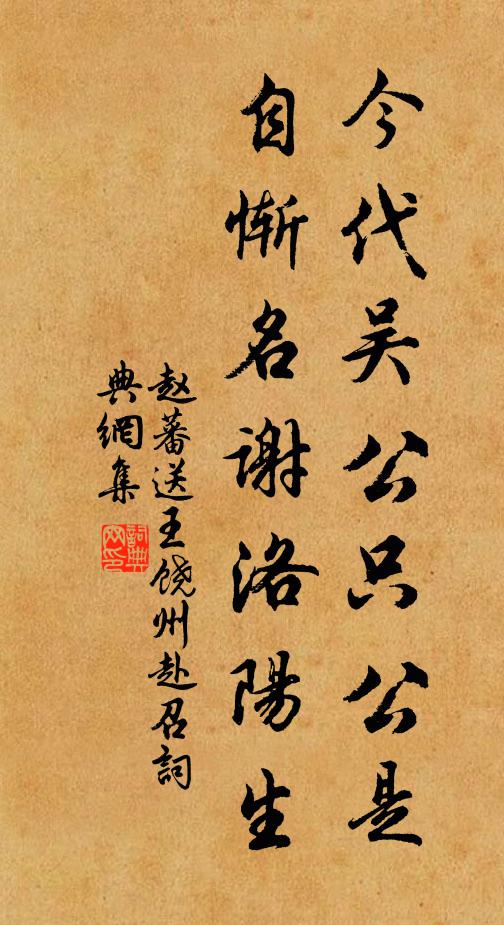 今代吴公只公是
自慚名谢洛陽生
赵蕃送王饶州赴召詞
典網集
詞典
网印